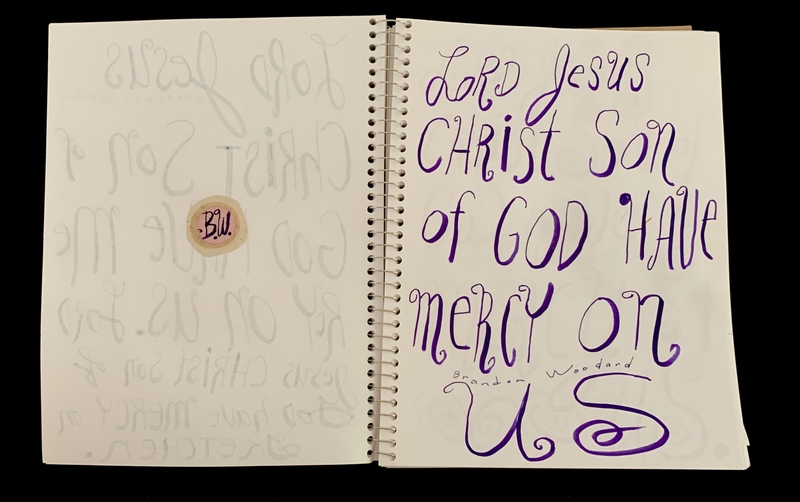 .B.W.
LORD Jesus
CHRist Son
of GOD HAVE
meRCY on
Brandon Woodard
US